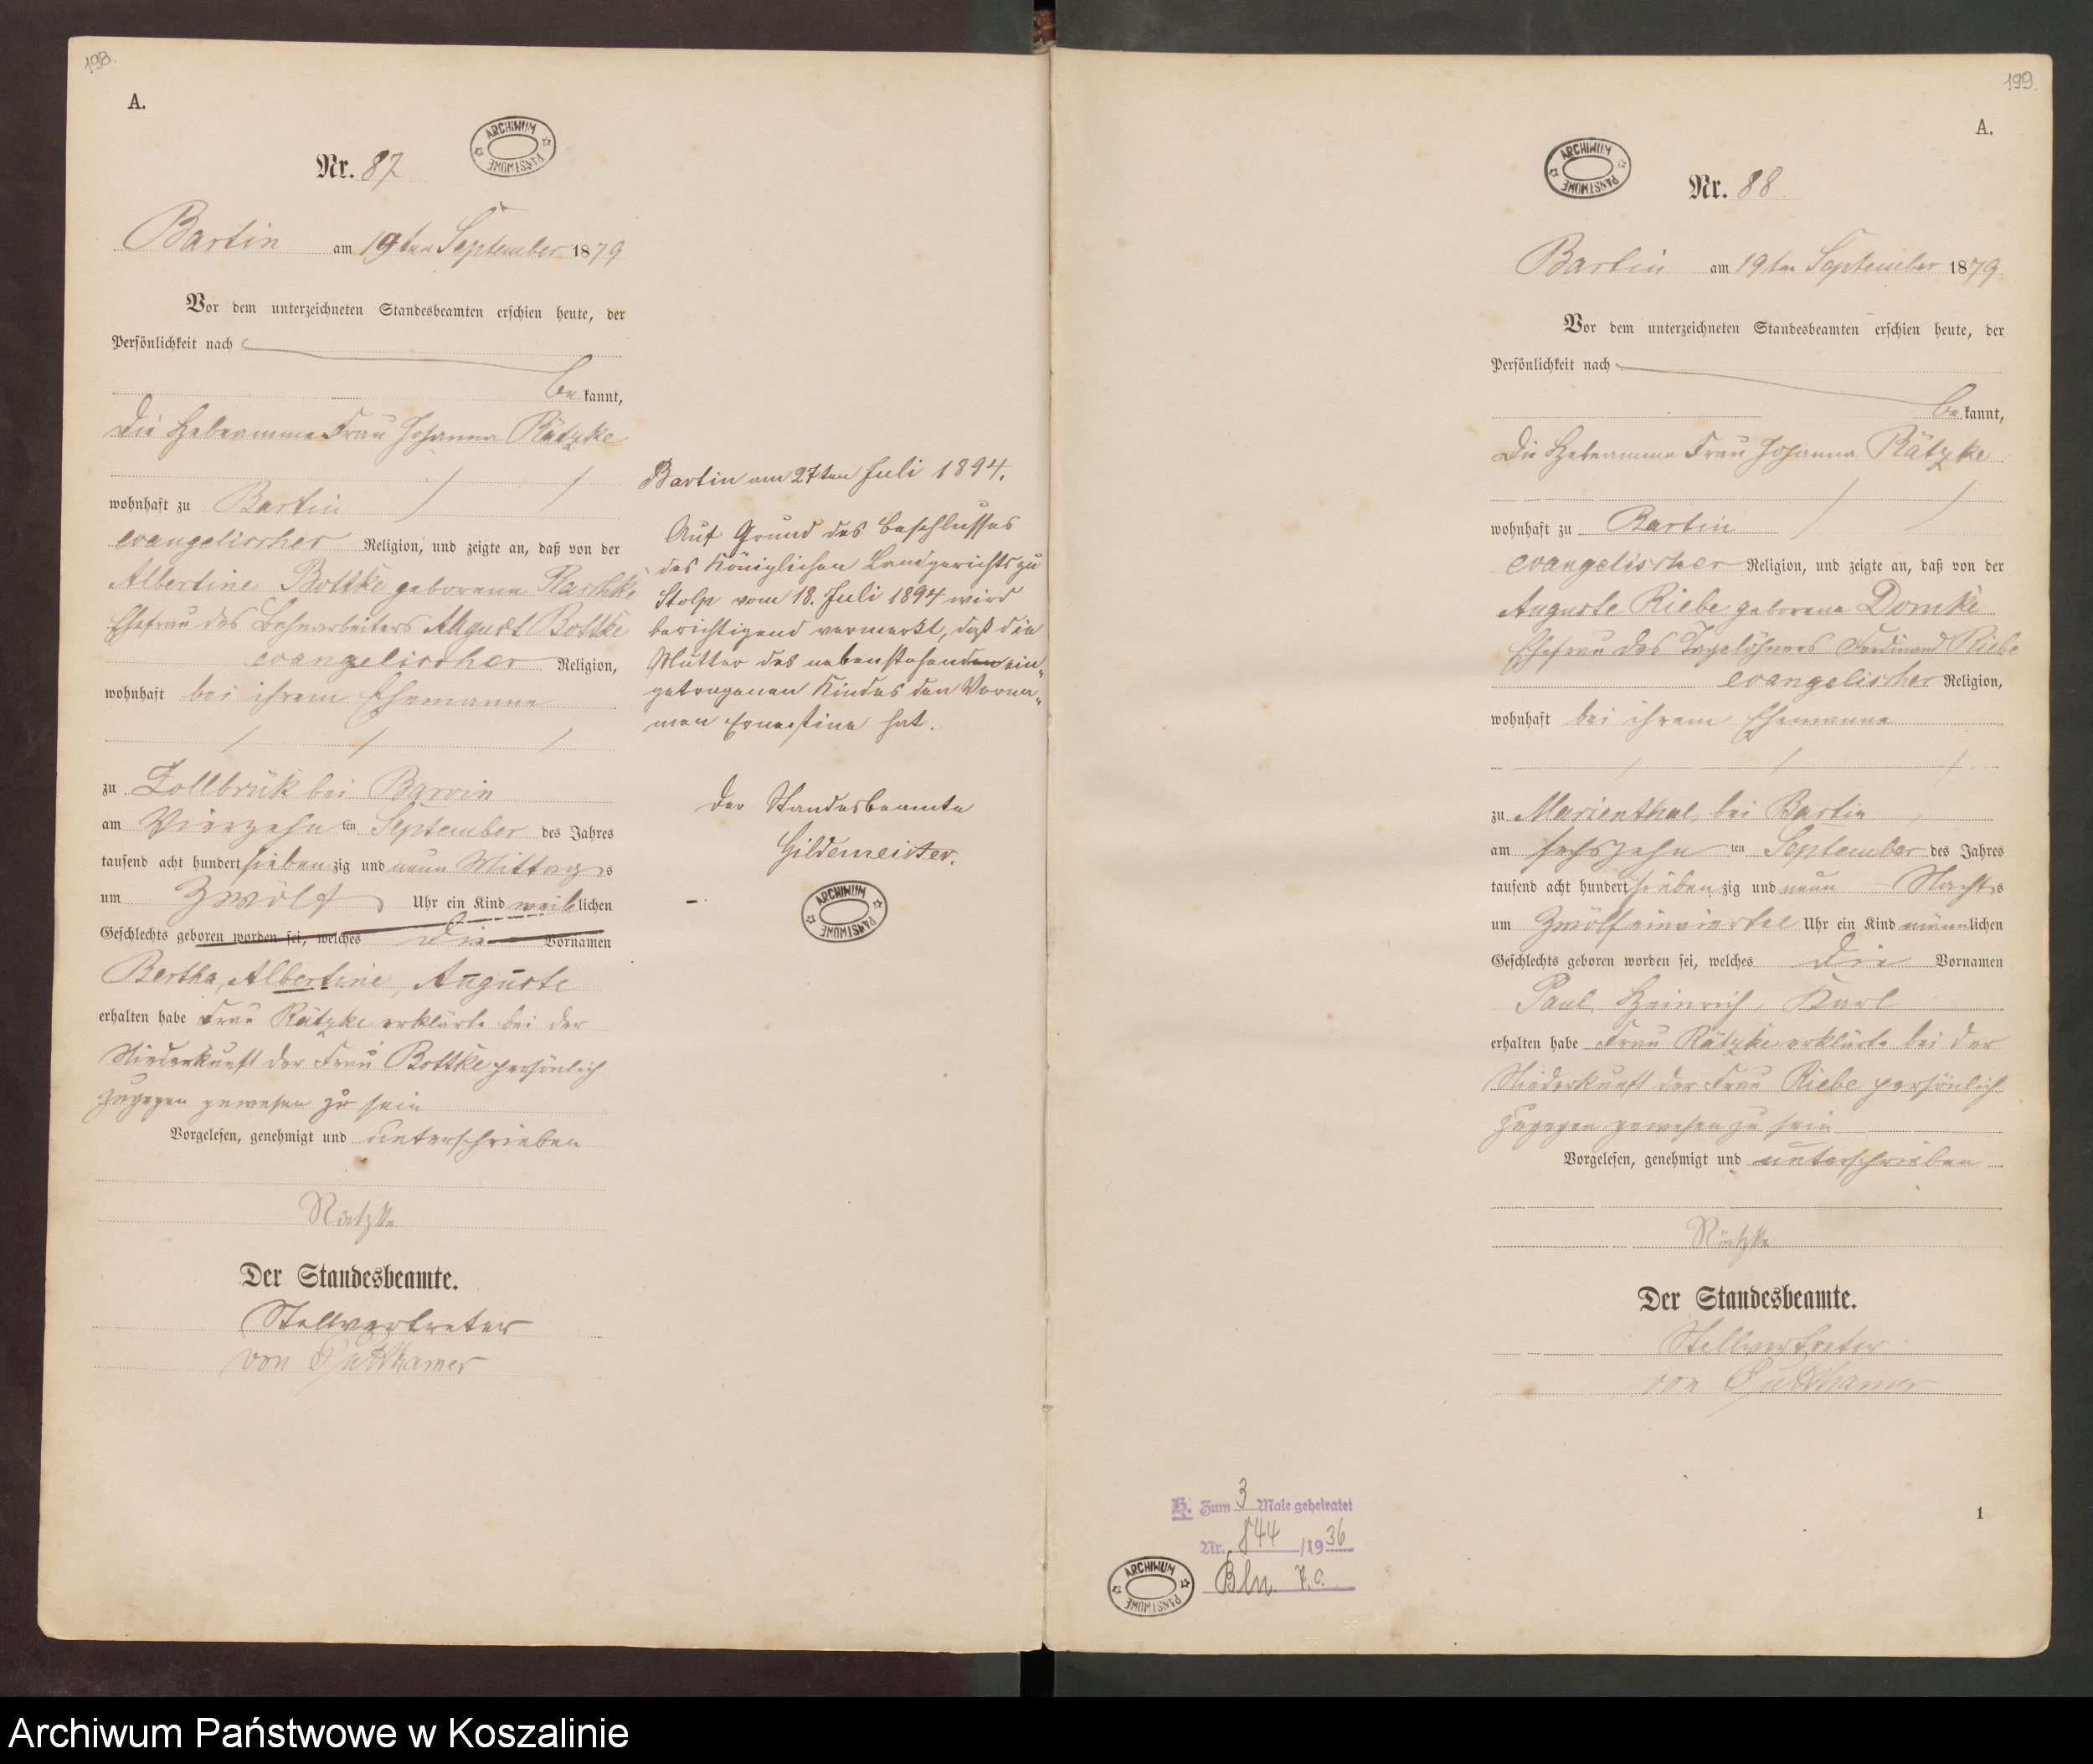 198.
A.
ARCHIWUM PAŃSTWOWE
Nr. 87
Bartin am 19ten September 1879
Vor dem unterzeichneten Standesbeamten erschien heute, der
Persönlichkeit nach
be kannt,
die Hebeamme Frau Johanna Rätzke
wohnhaft zu Bartin
evangelischer Religion, und zeigte an, daß von der
Albertine Bottke geborene Raschke
Ehefrau des Bahnarbeiters August Bottke
evangelischer Religion,
wohnhaft bei ihrem Ehemanne
zu Zollbrük bei Barvin
am Vierzehn ten September des Jahres
tausend acht hundert sieben zig und neun Mittags
um Zwölf Uhr ein Kind weiblichen
Geschlechts geboren worden sei, welches die Vornamen
Bertha, Albertine, Auguste
erhalten habe Frau Rätzke erklärte bei der
Niederkunft der Frau Bottke persönlich
zugegen gewesen zu sein
Vorgelesen, genehmigt und unterschrieben
Rätzke
Der Standesbeamte.
Stellvertreter
von Puttkamer
Bartin am 27ten Juli 1894.
Auf Grund des Beschlusses
des Königlichen Landgerichts zu
Stolp vom 18. Juli 1894 wird
berichtigend vermerkt, daß die
Mutter des nebenstehenden ein-
getragenen Kindes den Vorna-
men Ernestine hat.
Der Standesbeamte
Gildemeister.
ARCHIWUM PAŃSTWOWE
199.
A.
ARCHIWUM PAŃSTWOWE
Nr. 88.
Bartin am 19ten September 1879
Vor dem unterzeichneten Standesbeamten erschien heute, der
Persönlichkeit nach
be kannt,
Die Hebeamme Frau Johanna Rätzke
wohnhaft zu Bartin
evangelischer Religion, und zeigte an, daß von der
Auguste Riebe geborene Domke
Ehefrau des Tagelöhners Ferdinand Riebe
evangelischer Religion,
wohnhaft bei ihrem Ehemanne
zu Marienthal, bei Bartin
am sechszehn ten September des Jahres
tausend acht hundert sieben zig und neun Nachts
um Zwölfeinviertel Uhr ein Kind männlichen
Geschlechts geboren worden sei, welches die Vornamen
Paul, Heinrich, Karl
erhalten habe Frau Rätzke erklärte bei der
Niederkunft der Frau Riebe persönlich
zugegen gewesen zu sein
Vorgelesen, genehmigt und unterschrieben
Rätzke
Der Standesbeamte.
Stellvertreter
von Puttkamer
H. Zum 3 Male geheiratet
Nr. 844 /1936
Bln.
ARCHIWUM PAŃSTWOWE
1
Archiwum Państwowe w Koszalinie